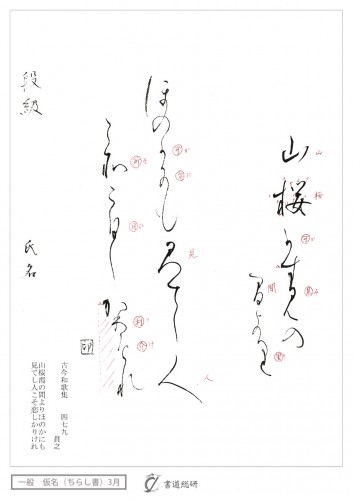 山桜かすみの
間より
ほのかにも見てし人
こそこひし
かりけれ
印
段級 氏名
古今和歌集 四七九 貫之
山桜霞の間よりほのかにも
見てし人こそ恋しかりけれ
一般 仮名（ちらし書）3月
書道総研